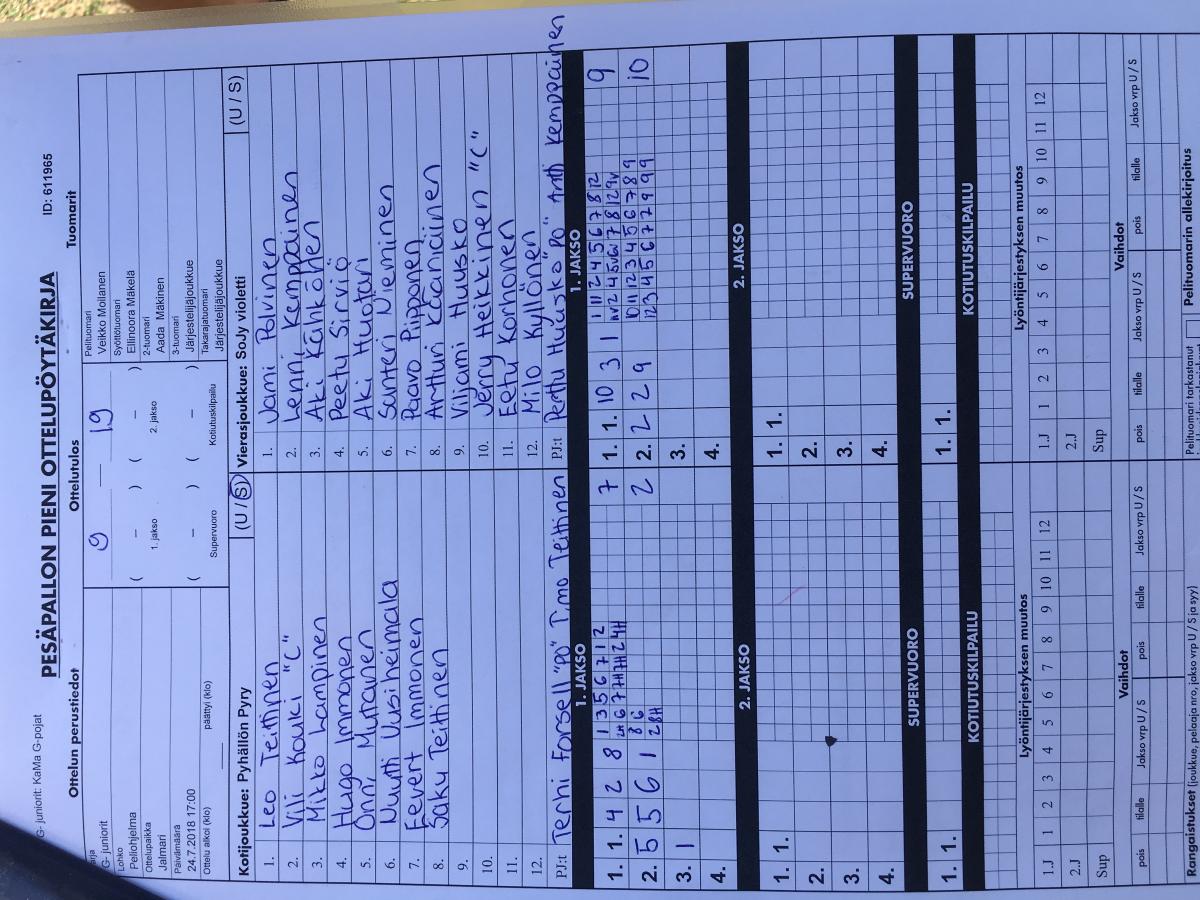 G- juniorit: KaMa G-pojat
PESÄPALLON PIENI OTTELUPÖYTÄKIRJA
ID: 611965
Ottelun perustiedot
Ottelutulos
Tuomarit
G- juniorit
Lohko
Peliohjelma
Ottelupaikka
Jalmari
Päivämäärä
24.7.2018 17:00
Ottelu alkoi (klo) päättyi (klo)
9 — 19
( – ) ( – )
1. jakso 2. jakso
( – ) ( – )
Supervuoro Kotiutuskilpailu
Pelituomari
Veikko Moilanen
Syöttötuomari
Ellinoora Mäkelä
2-tuomari
Aada Mäkinen
3-tuomari
Järjestelijäjoukkue
Takarajatuomari
Järjestelijäjoukkue
Kotijoukkue: Pyhällön Pyry (U / S)
1. Leo Teittinen
2. Villi Kouki "C"
3. Mikko Lampinen
4. Hugo Immonen
5. Onni Mutanen
6. Nuutti Uusiheimala
7. Eevert Immonen
8. Saku Teittinen
9.
10.
11.
12.
PJ:t Terhi Forsell "PO" Timo Teittinen
Vierasjoukkue: SoJy violetti (U / S)
1. Jami Polvinen
2. Lenni Kemppainen
3. Aki Kähkönen
4. Peetu Sirviö
5. Aki Huotari
6. Santeri Nieminen
7. Paavo Piipponen
8. Artturi Kääriäinen
9. Viljami Huusko
10. Jerry Heikkinen "C"
11. Eetu Korhonen
12. Milo Kyllönen
PJ:t Perttu Huusko "PO" Antti Kemppainen
1. JAKSO
1. 1. 4 2 8 1 3 5 6 7 1 2 7
2. 5 5 6 1 8 6 2
3. 1
4.
1. JAKSO
1. 1. 10 3 1 1 11 2 4 5 6 7 8 12 9
2. 2 2 9 10 11 12 3 4 5 6 7 8 9 10
12 3 4 5 6 7 7 9 9 9
3.
4.
2. JAKSO
1. 1.
2.
3.
4.
2. JAKSO
1. 1.
2.
3.
4.
SUPERVUORO
1. 1.
SUPERVUORO
1. 1.
KOTIUTUSKILPAILU
KOTIUTUSKILPAILU
Lyöntijärjestyksen muutos
1.J 1 2 3 4 5 6 7 8 9 10 11 12
2.J
Sup
Lyöntijärjestyksen muutos
1.J 1 2 3 4 5 6 7 8 9 10 11 12
2.J
Sup
Vaihdot
pois tilalle Jakso vrp U / S pois tilalle Jakso vrp U / S
Vaihdot
pois tilalle Jakso vrp U / S pois tilalle Jakso vrp U / S
Rangaistukset (joukkue, pelaaja nro, jakso vrp U / S ja syy)
Pelituomari tarkastanut
Pelituomarin allekirjoitus